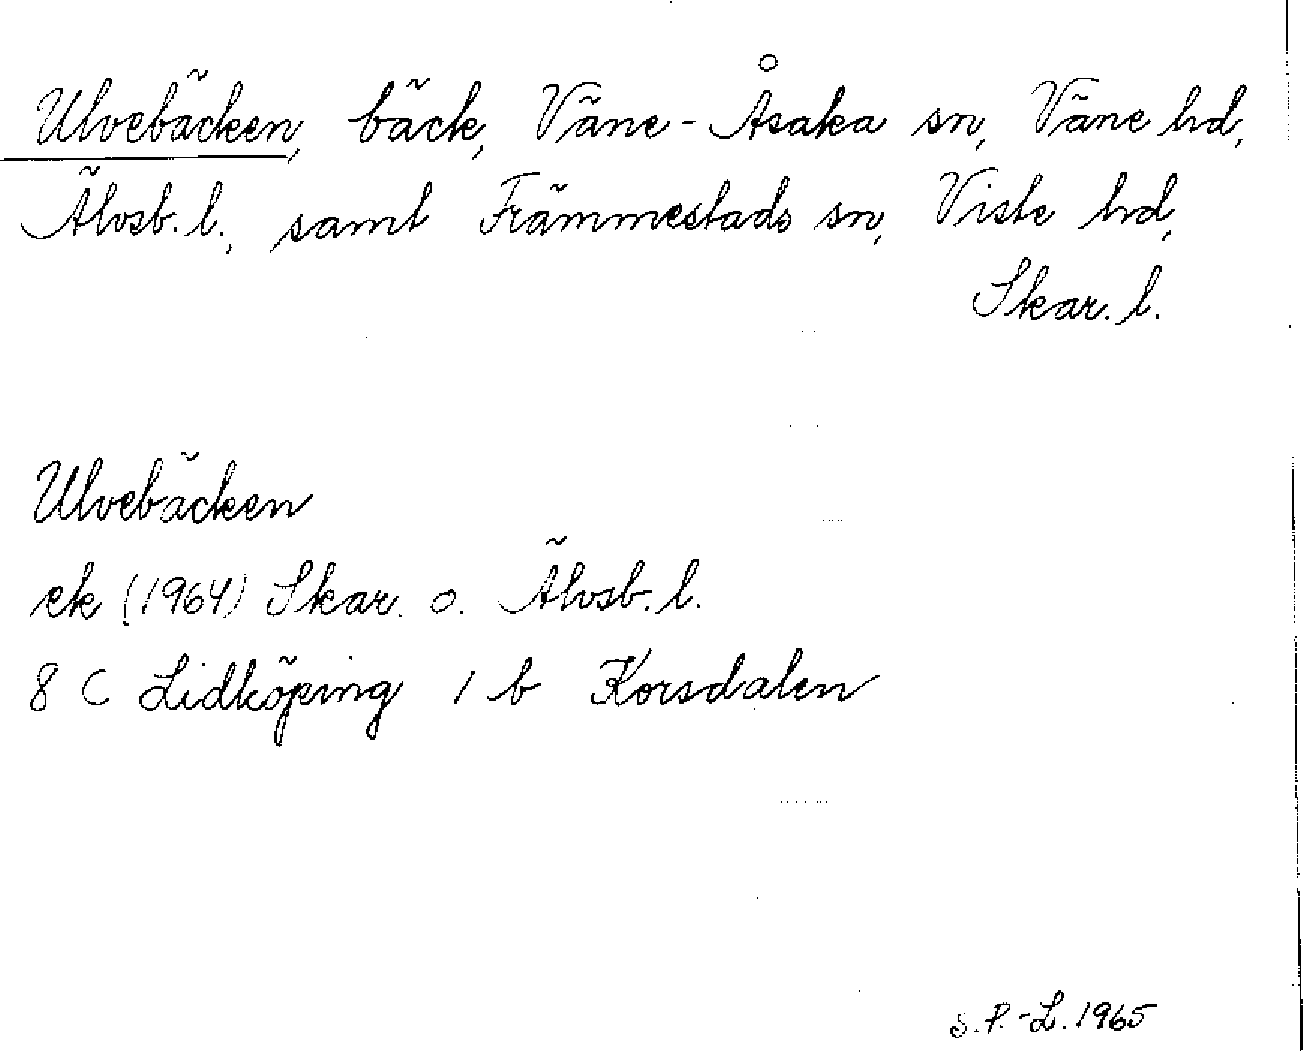 Ulvebäcken, bäck, Väne-Åsaka sn, Väne hd,
Älvsb. l., samt Främmestads sn, Viste hd,
Skar. l.
Ulvebäcken
ek (1964) Skar. o. Älvsb. l.
8 C Lidköping 1 b Korsdalen
S. P.-L. 1965